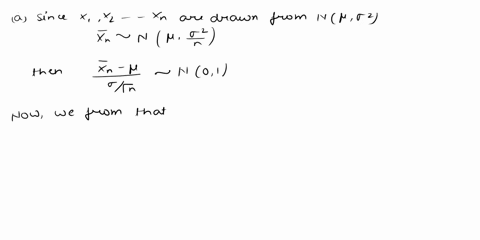 (a) since x₁, x₂ -- xn are drawn from N(μ, σ²)
x̄n ~ N (μ, σ²/n)
then (x̄n - μ)/(σ/√n) ~ N (0,1)
NOW, we from that